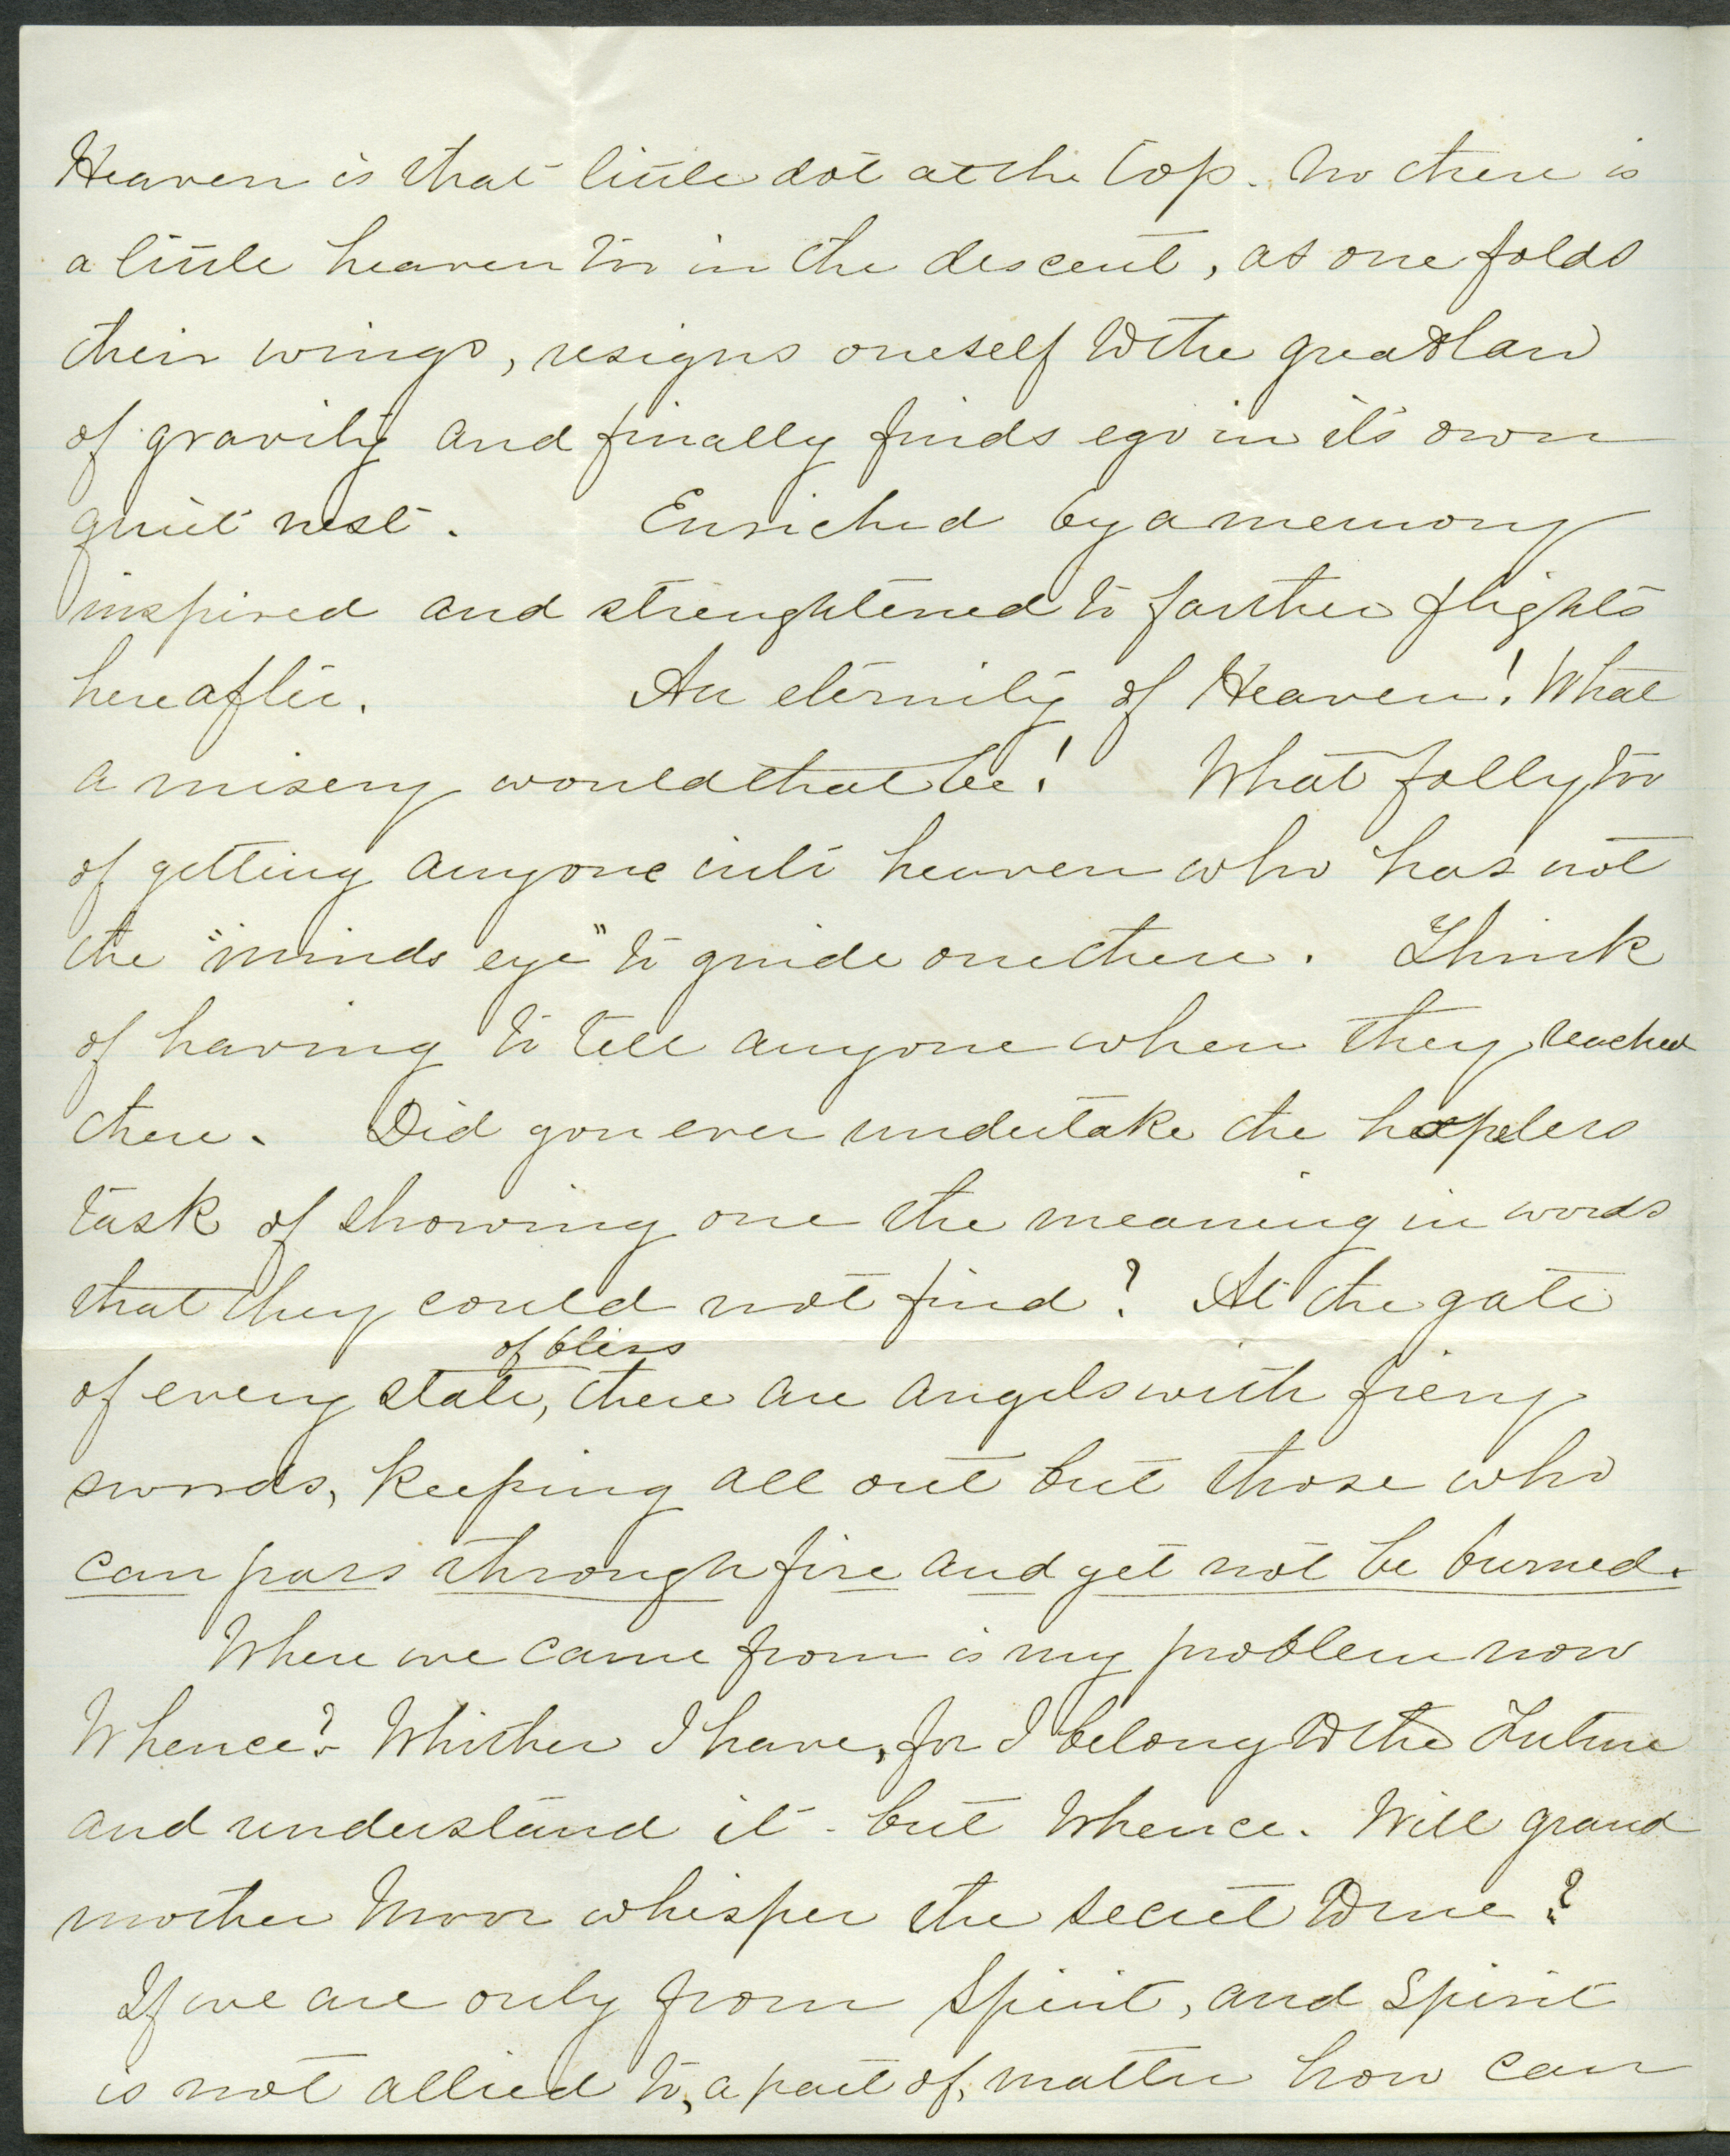 Heaven is that little dot at the top. No there is
a little heaven too in the descent, as one folds
their wings, resigns oneself to the great law
of gravity and finally finds ego in its own
quiet nest. Enriched by a memory
inspired and strenghtened to farther flights
hereafter. An eternity of Heaven! What
a misery would that be! What folly too
of getting anyone into heaven who has not
the "minds eye" to guide one there. Think
of having to tell anyone when they reached
there. Did you ever undertake the hopeless
task of showing one the meaning in words
that they could not find? At the gate
of bliss
of every state, there are angels with fiery
swords, keeping all out but those who
can pass through fire and yet not be burned.
Where we came from is my problem now
Whence? Whither I have, for I belong to the Future
and understand it - but Whence. Will grand
mother Moor whisper the secret to me?
If we are only from Spirit, and Spirit
is not allied to, a part of, matter how can